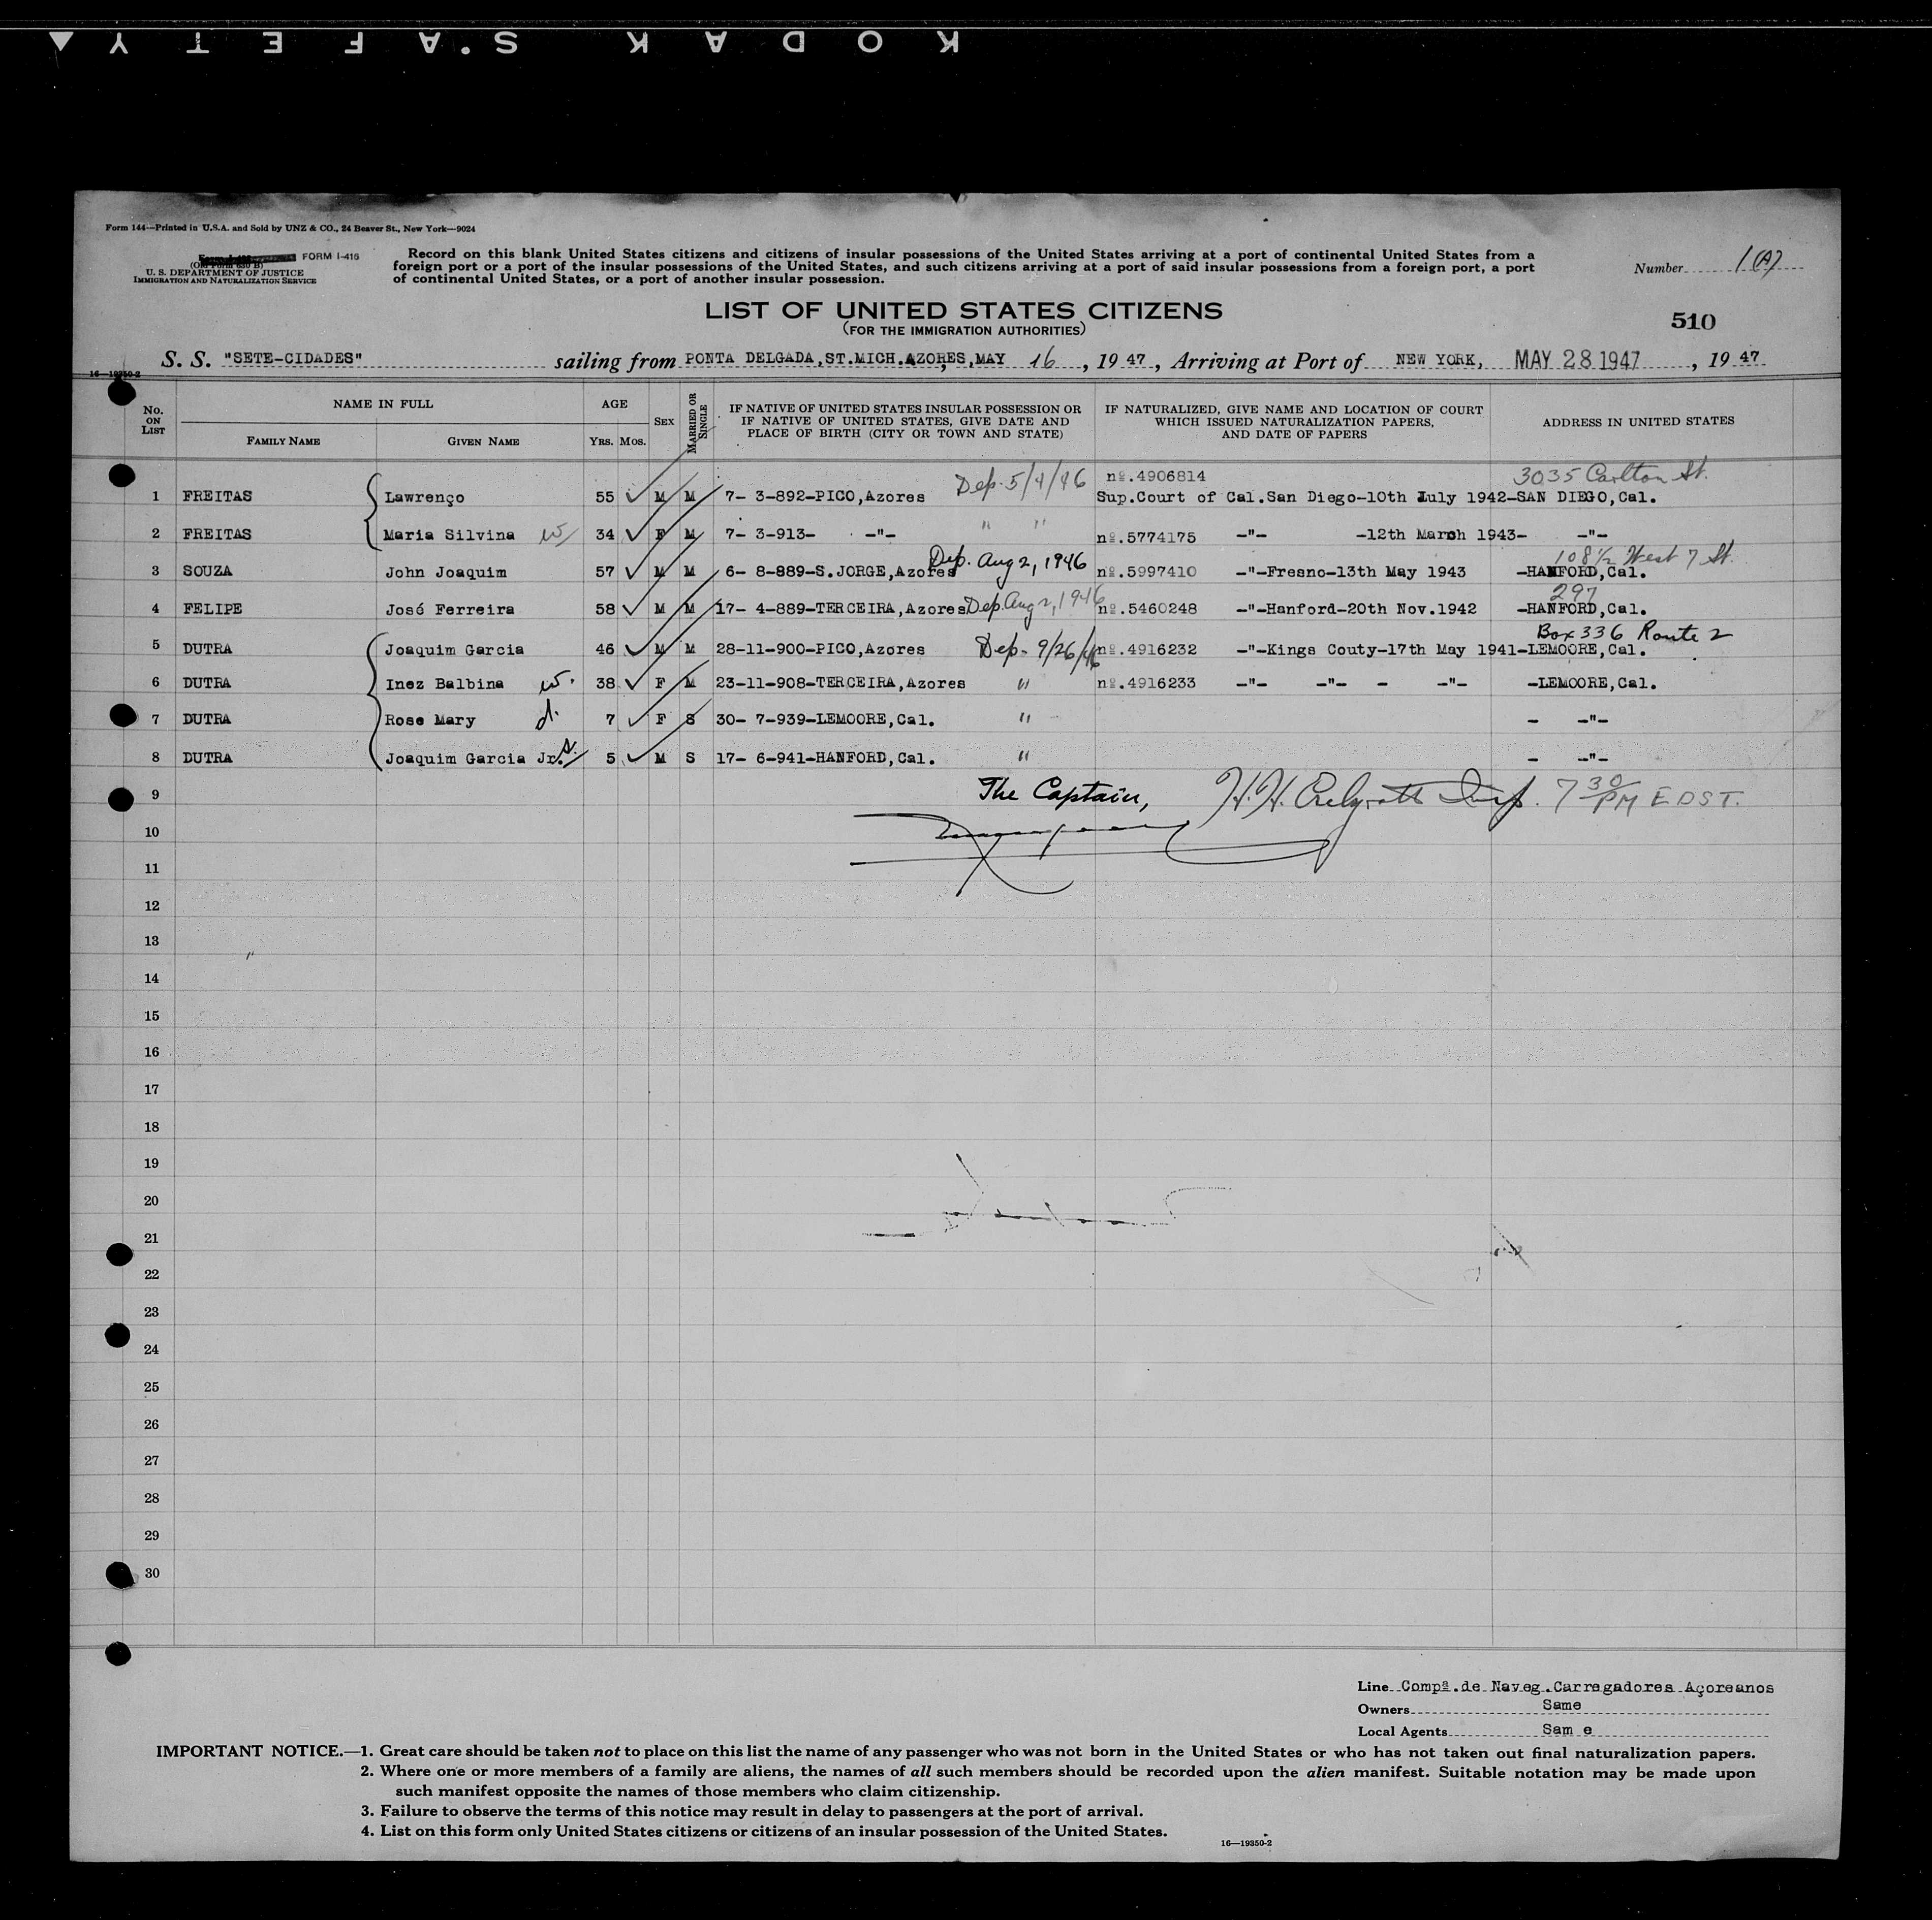 KODAK S.AFETY
Form 144—Printed in U.S.A. and Sold by UNZ & CO., 24 Beaver St., New York—9024
FORM I-416
(Old Form 630 B)
U. S. DEPARTMENT OF JUSTICE
IMMIGRATION AND NATURALIZATION SERVICE
Record on this blank United States citizens and citizens of insular possessions of the United States arriving at a port of continental United States from a
foreign port or a port of the insular possessions of the United States, and such citizens arriving at a port of said insular possessions from a foreign port, a port
of continental United States, or a port of another insular possession.
Number 1(A)
LIST OF UNITED STATES CITIZENS
(FOR THE IMMIGRATION AUTHORITIES)
510
S. S. "SETE-CIDADES" sailing from PONTA DELGADA,ST.MICH.AZORES,MAY 16, 1947, Arriving at Port of NEW YORK, MAY 28 1947, 1947
16—19350-2
No. ON LIST
NAME IN FULL
FAMILY NAME
GIVEN NAME
AGE
YRS. MOS.
SEX
MARRIED OR SINGLE
IF NATIVE OF UNITED STATES INSULAR POSSESSION OR
IF NATIVE OF UNITED STATES, GIVE DATE AND
PLACE OF BIRTH (CITY OR TOWN AND STATE)
IF NATURALIZED, GIVE NAME AND LOCATION OF COURT
WHICH ISSUED NATURALIZATION PAPERS,
AND DATE OF PAPERS
ADDRESS IN UNITED STATES
Dep. 5/4/46 nº.4906814 3035 Carlton St.
1 FREITAS Lawrenço 55 M M 7- 3-892-PICO,Azores Sup.Court of Cal.San Diego-10th July 1942-SAN DIEGO,Cal.
2 FREITAS Maria Silvina w 34 F M 7- 3-913- -"- " " nº.5774175 -"- -12th March 1943- -"-
Dep. Aug 2, 1946 108 1/2 West 7 St.
3 SOUZA John Joaquim 57 M M 6- 8-889-S.JORGE,Azores nº.5997410 -"-Fresno-13th May 1943 -HANFORD,Cal.
297
4 FELIPE José Ferreira 58 M M 17- 4-889-TERCEIRA,Azores Dep. Aug 2, 1946 nº.5460248 -"-Hanford-20th Nov.1942 -HANFORD,Cal.
Box 336 Route 2
5 DUTRA Joaquim Garcia 46 M M 28-11-900-PICO,Azores Dep. 9/26/46 nº.4916232 -"-Kings Couty-17th May 1941-LEMOORE,Cal.
6 DUTRA Inez Balbina w. 38 F M 23-11-908-TERCEIRA,Azores " nº.4916233 -"- -"- - -"- -LEMOORE,Cal.
7 DUTRA Rose Mary d. 7 F S 30- 7-939-LEMOORE,Cal. " - -"-
8 DUTRA Joaquim Garcia Jr. s. 5 M S 17- 6-941-HANFORD,Cal. " - -"-
9 The Captain, H.H. Insp. 7 30 PM EDST.
10
11
12
13
14
15
16
17
18
19
20
21
22
23
24
25
26
27
28
29
30
Line Compª.de Naveg.Carregadores Açoreanos
Owners Same
Local Agents Sam e
IMPORTANT NOTICE.—1. Great care should be taken not to place on this list the name of any passenger who was not born in the United States or who has not taken out final naturalization papers.
2. Where one or more members of a family are aliens, the names of all such members should be recorded upon the alien manifest. Suitable notation may be made upon
such manifest opposite the names of those members who claim citizenship.
3. Failure to observe the terms of this notice may result in delay to passengers at the port of arrival.
4. List on this form only United States citizens or citizens of an insular possession of the United States.
16—19350-2